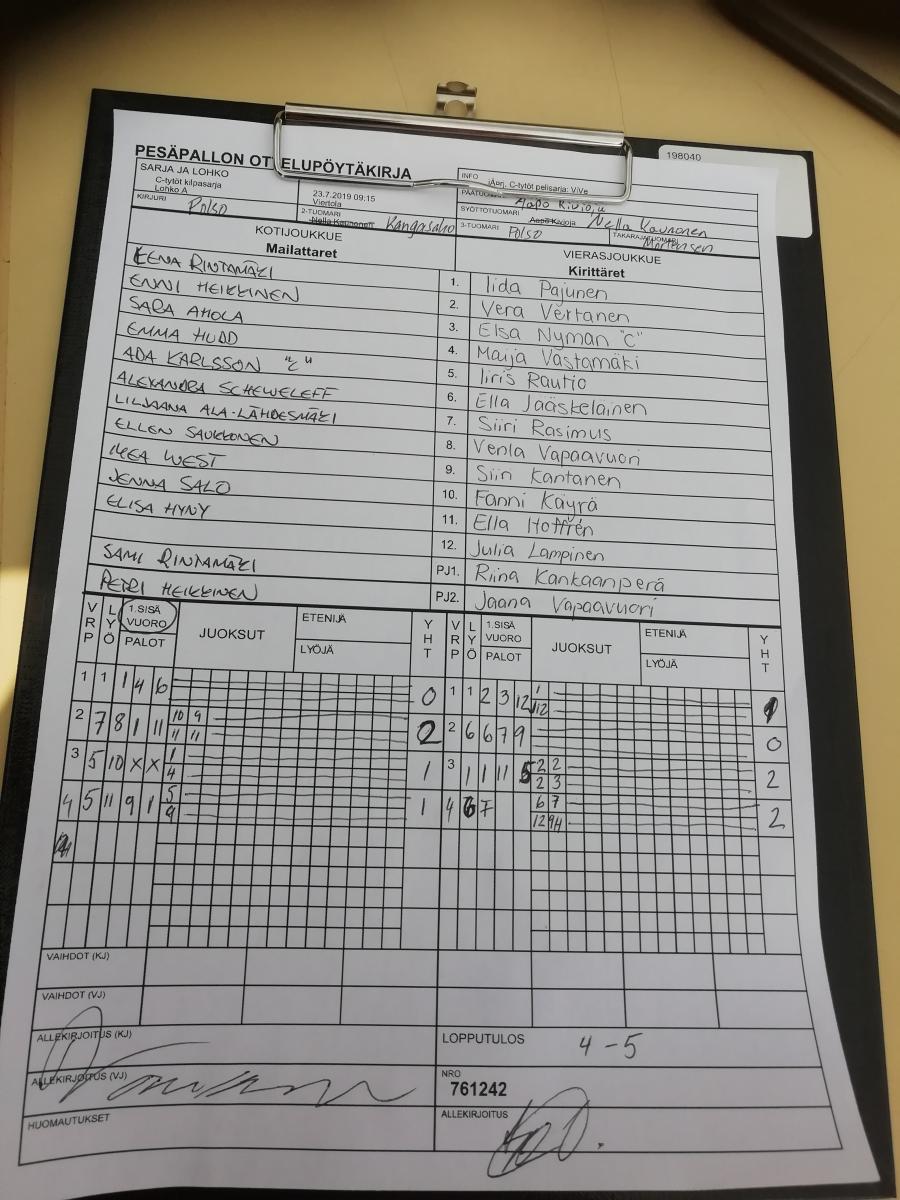 198040
PESÄPALLON OTTELUPÖYTÄKIRJA
SARJA JA LOHKO
C-tytöt kilpasarja
Lohko A
23.7.2019 09:15
Viertola
INFO
C-tytöt pelisarja: ViVe
KIRJURI Polso
2-TUOMARI
Nella Kauhonen Kangasaho
SYÖTTÖTUOMARI Nella Kauhonen
3-TUOMARI Polso
TAKARAJATUOMARI Mortensen
KOTIJOUKKUE
Mailattaret
VIERASJOUKKUE
Kirittäret
EENA RINTAMÄKI 1. Iida Pajunen
ENNI HEIKKINEN 2. Vera Vertanen
SARA AHOLA 3. Elsa Nyman "C"
EMMA HUDD 4. Maija Västamäki
ADA KARLSSON "C" 5. Iiris Rautio
ALEXANDRA SCHEWELEFF 6. Ella Jääskeläinen
LILJAANA ALA-LÄHDESMÄKI 7. Siiri Rasimus
ELLEN SAUKKONEN 8. Venla Vapaavuori
MEA WEST 9. Siiri Kantanen
JENNA SALO 10. Fanni Käyrä
ELISA HYNY 11. Ella Hoffrén
12. Julia Lampinen
SAMI RINTAMÄKI PJ1. Riina Kankaanperä
PETRI HEIKKINEN PJ2. Jaana Vapaavuori
VRP LYÖ 1.SISÄ VUORO PALOT JUOKSUT ETENIJÄ LYÖJÄ YHT VRP LYÖ 1.SISÄ VUORO PALOT JUOKSUT ETENIJÄ LYÖJÄ YHT
1 1 1 4 6 0 1 1 2 3 12 1 1
12
2 7 8 1 11 10 9 2 2 6 6 7 9 0
11 11
3 5 10 X X 1 1 3 1 1 11 5 2 2 2
4 2 3
4 5 11 9 1 5 1 4 6 7 6 7 2
9 12 9H
VAIHDOT (KJ)
VAIHDOT (VJ)
ALLEKIRJOITUS (KJ)
LOPPUTULOS 4 - 5
ALLEKIRJOITUS (VJ)
NRO
761242
HUOMAUTUKSET
ALLEKIRJOITUS